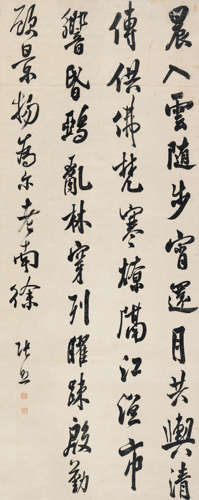 晨入雲隨步宵還月共輿清
傳供佛梵寒燎隔江漁市
響昏鴉亂林穿列曜疎殷勤
顧景物為尔老南徐 張照